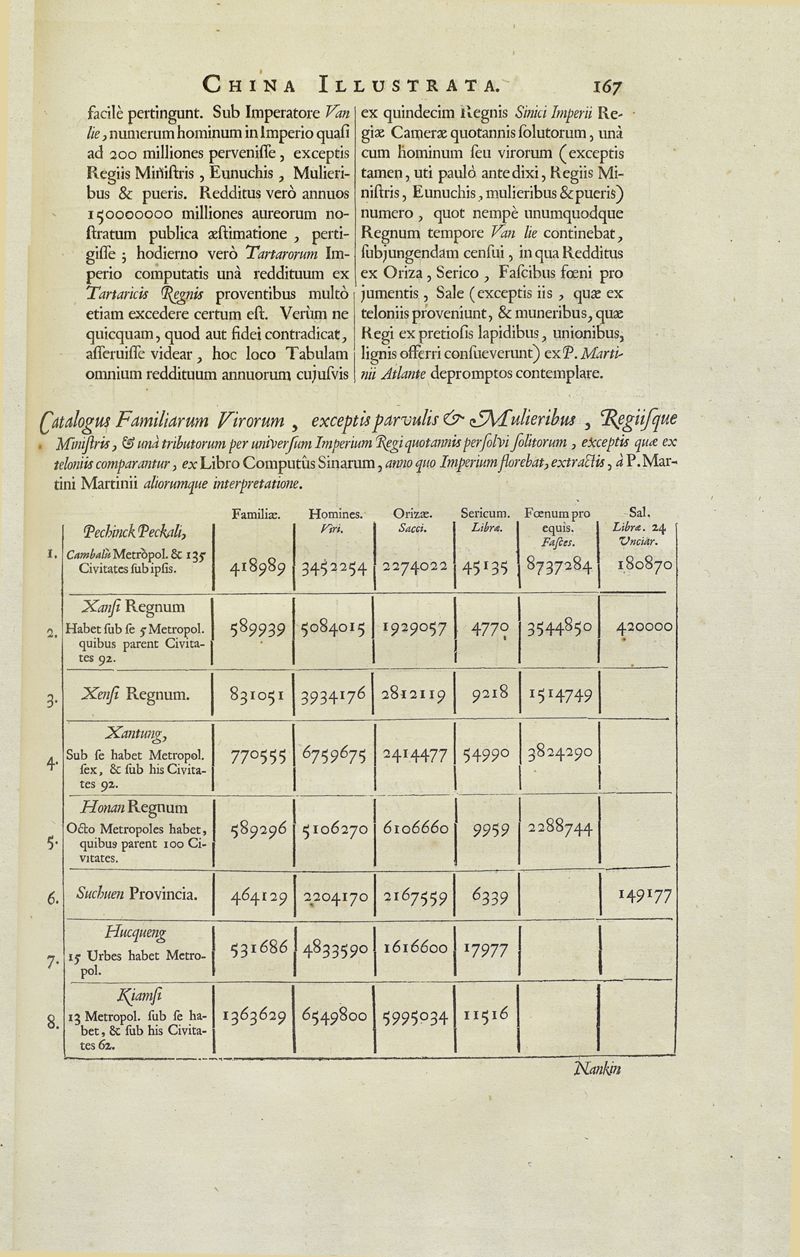 CHINA ILLUSTRATA. 167
facilè pertingunt. Sub Imperatore Van
lie, numerum hominum in Imperio quaſi
ad 200 milliones perveniſſe, exceptis
Regiis Miniſtris, Eunuchis, Mulieri-
bus & pueris. Redditus verò annuos
150000000 milliones aureorum no-
ſtratum publica æſtimatione, perti-
giſſe; hodierno verò Tartarorum Im-
perio computatis unà reddituum ex
Tartaricis Regnis proventibus multò
etiam excedere certum eſt. Verùm ne
quicquam, quod aut fidei contradicat,
aſſeruiſſe videar, hoc loco Tabulam
omnium reddituum annuorum cujuſvis
ex quindecim Regnis Sinici Imperii Re-
giæ Cameræ quotannis ſolutorum, unà
cum hominum ſeu virorum (exceptis
tamen, uti paulò ante dixi, Regiis Mi-
niſtris, Eunuchis, mulieribus & pueris)
numero, quot nempè unumquodque
Regnum tempore Van lie continebat,
ſubjungendam cenſui, in qua Redditus
ex Oriza, Serico, Faſcibus fœni pro
jumentis, Sale (exceptis iis, quæ ex
teloniis proveniunt, & muneribus, quæ
Regi ex pretioſis lapidibus, unionibus,
lignis offerri conſueverunt) ex P. Marti-
nii Atlante depromptos contemplare.
Catalogus Familiarum Virorum, exceptis parvulis & Mulieribus, Regiiſque
Miniſtris, & unà tributorum per univerſum Imperium Regi quotannis perſolvi ſolitorum, exceptis quæ ex
teloniis comparantur, ex Libro Computûs Sinarum, anno quo Imperium florebat, extractis, à P. Mar-
tini Martinii aliorumque interpretatione.
Familiæ. Homines. Orizæ. Sericum. Fœnum pro Sal.
Viri. Sacci. Libræ. equis. Libræ. 24
Faſces. Vnciar.
Pechinck Peckali,
1. Cambalù Metropol. & 135
Civitates ſub ipſis. 418989 3452254 2274022 45135 8737284 180870
Xanſi Regnum
2. Habet ſub ſe 5 Metropol. 589939 5084015 1929057 4770 3544850 420000
quibus parent Civita-
tes 92.
3. Xenſi Regnum. 831051 3934176 2812119 9218 1514749
Xantung,
4. Sub ſe habet Metropol. 770555 6759675 2414477 54990 3824290
ſex, & ſub his Civita-
tes 92.
Honan Regnum
5. Octo Metropoles habet, 589296 5106270 6106660 9959 2288744
quibus parent 100 Ci-
vitates.
6. Suchuen Provincia. 464129 2204170 2167559 6339 149177
Hucqueng
7. 15 Urbes habet Metro- 531686 4833590 1616600 17977
pol.
Kiamſi
8. 13 Metropol. ſub ſe ha- 1363629 6549800 5995034 11516
bet, & ſub his Civita-
tes 62.
Nankin